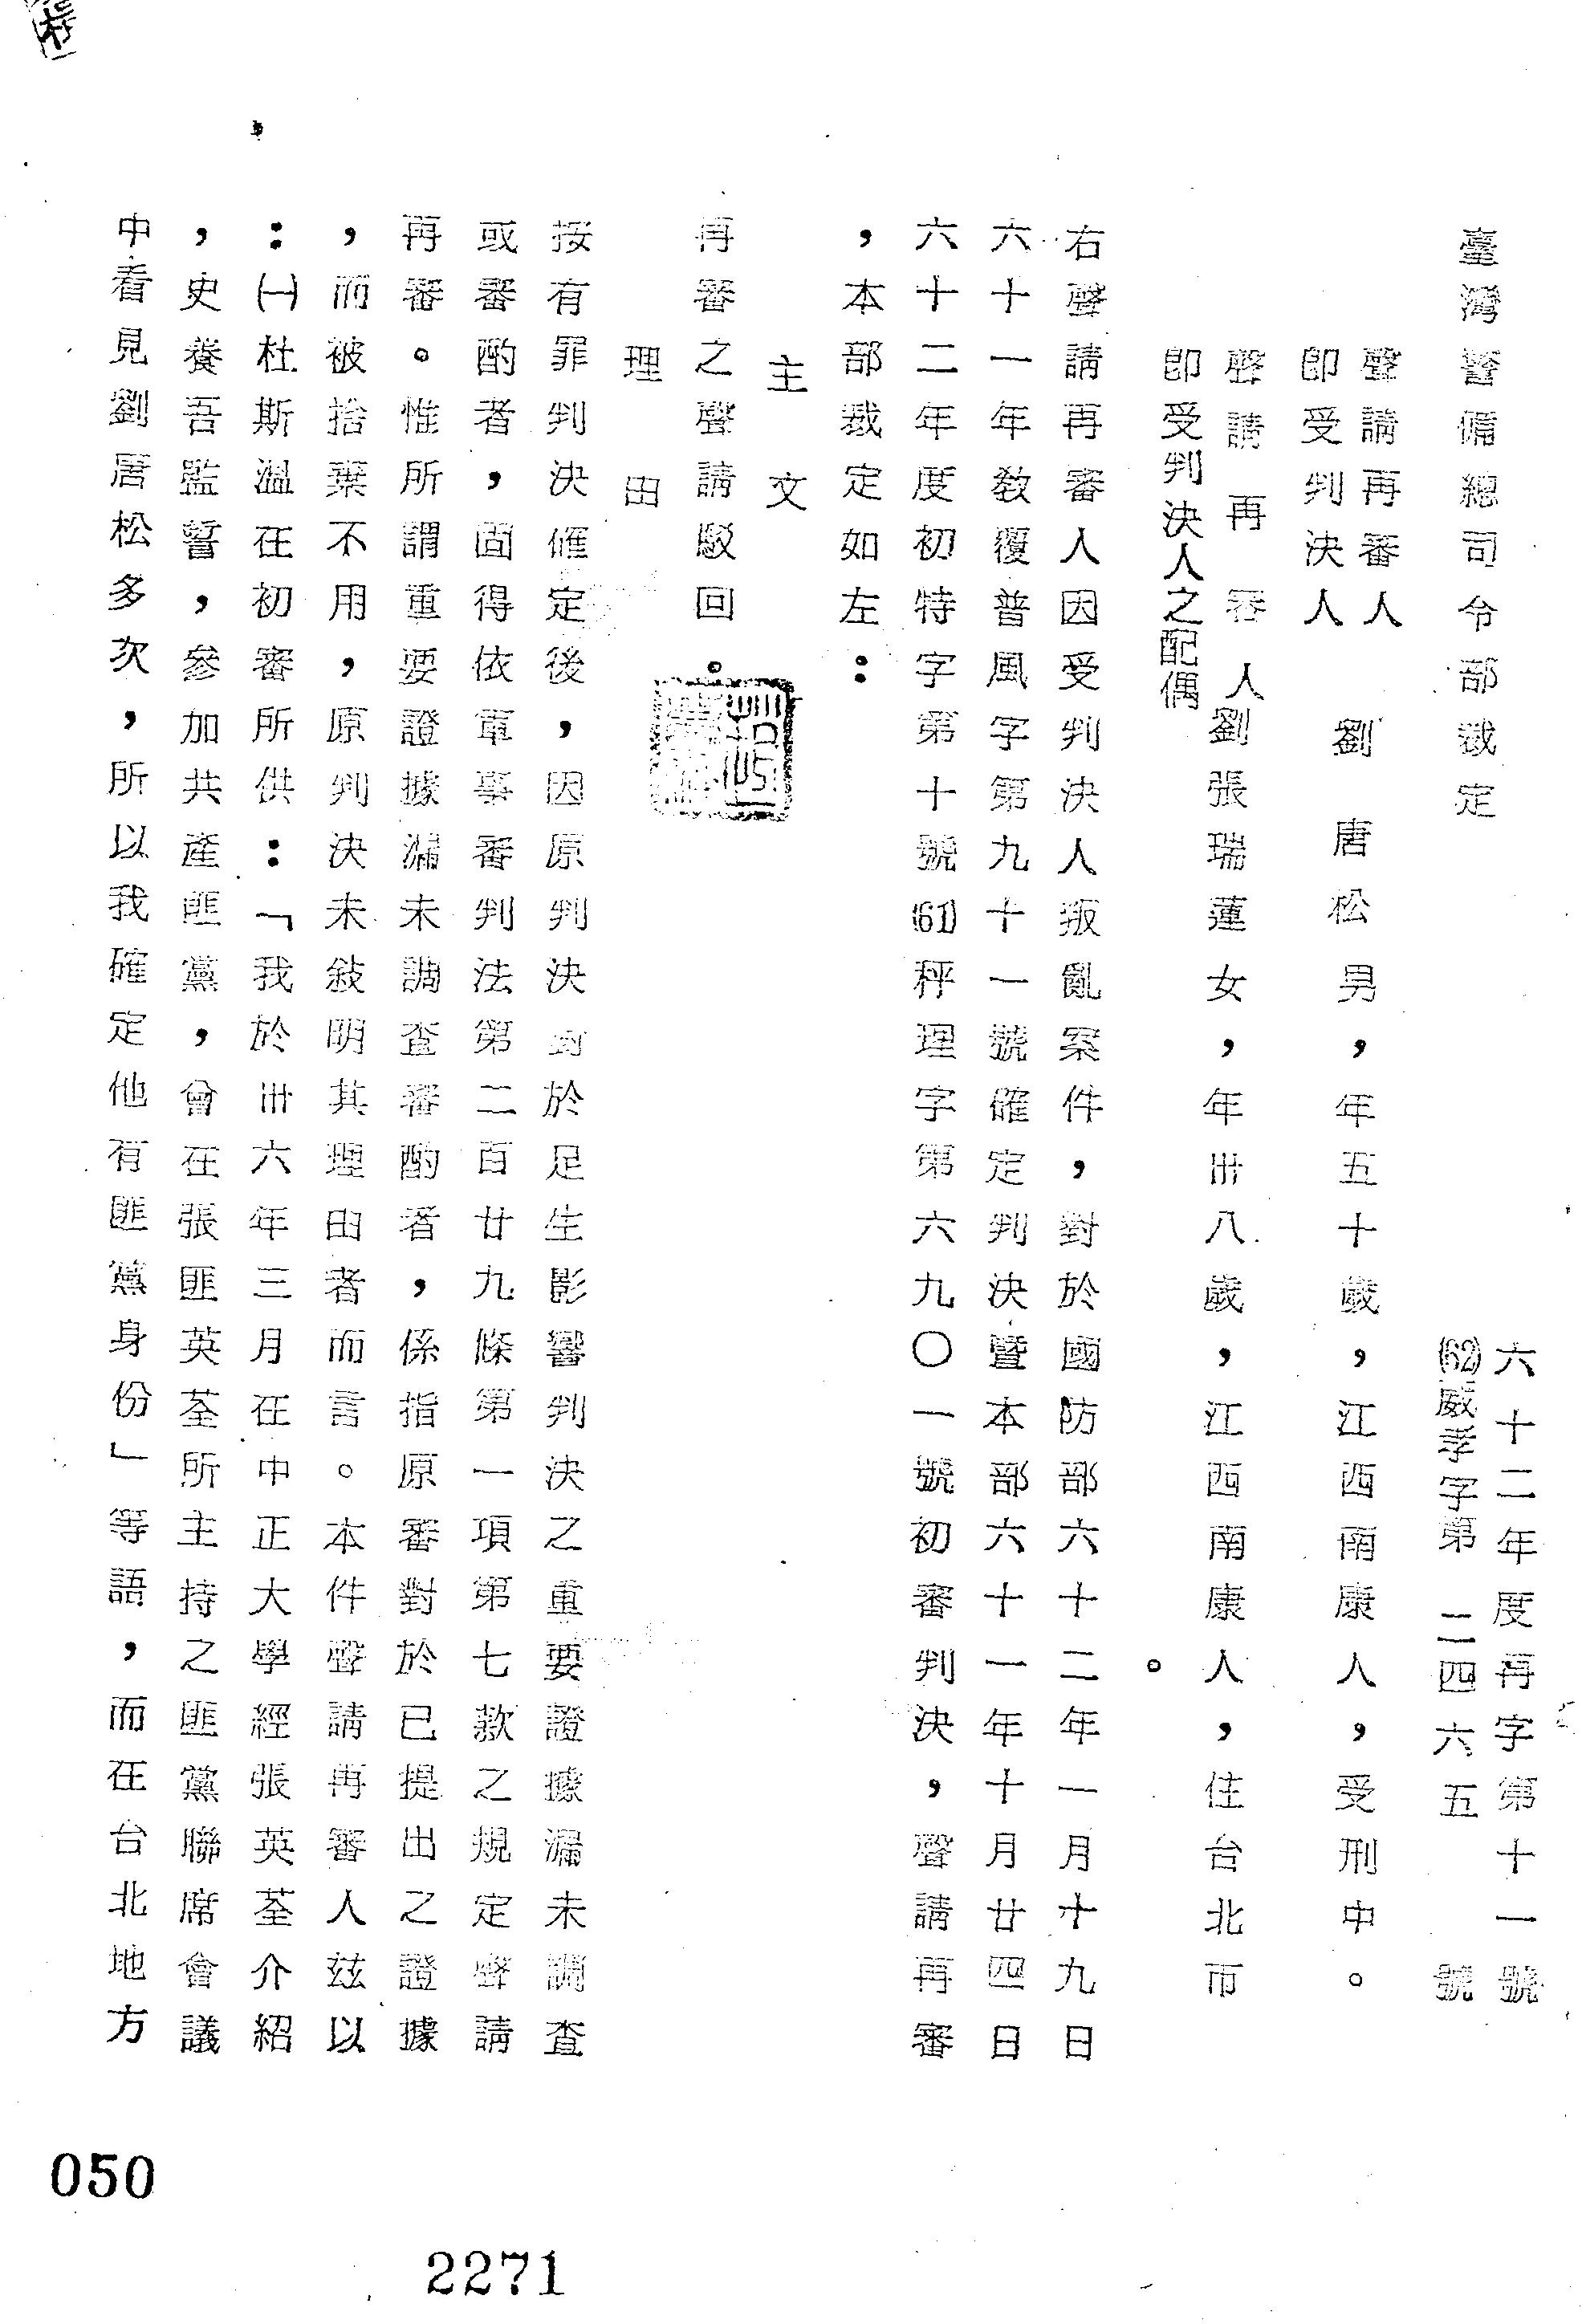 臺灣警備總司令部裁定
六十二年度再字第十一號
(62)威孝字第二四六五號
聲請再審人
即受判決人
劉唐松男,年五十歲,江西南康人,受刑中。
聲請再審人
即受判決人之配偶
劉張瑞蓮女,年卅八歲,江西南康人,住台北市
。
右聲請再審人因受判決人叛亂案件,對於國防部六十二年一月十九日
六十一年教覆普風字第九十一號確定判決暨本部六十一年十月廿四日
六十二年度初特字第十號(61)秤理字第六九〇一號初審判決,聲請再審
,本部裁定如左:
主文
再審之聲請駁回。
理由
按有罪判決確定後,因原判決對於足生影響判決之重要證據漏未調查
或審酌者,固得依軍事審判法第二百廿九條第一項第七款之規定聲請
再審。惟所謂重要證據漏未調查審酌者,係指原審對於已提出之證據
,而被捨棄不用,原判決未敍明其理由者而言。本件聲請再審人玆以
:㈠杜斯溫在初審所供:「我於卅六年三月在中正大學經張英荃介紹
,史養吾監誓,參加共產匪黨,曾在張匪英荃所主持之匪黨聯席會議
中看見劉唐松多次,所以我確定他有匪黨身份」等語,而在台北地方
050
2271